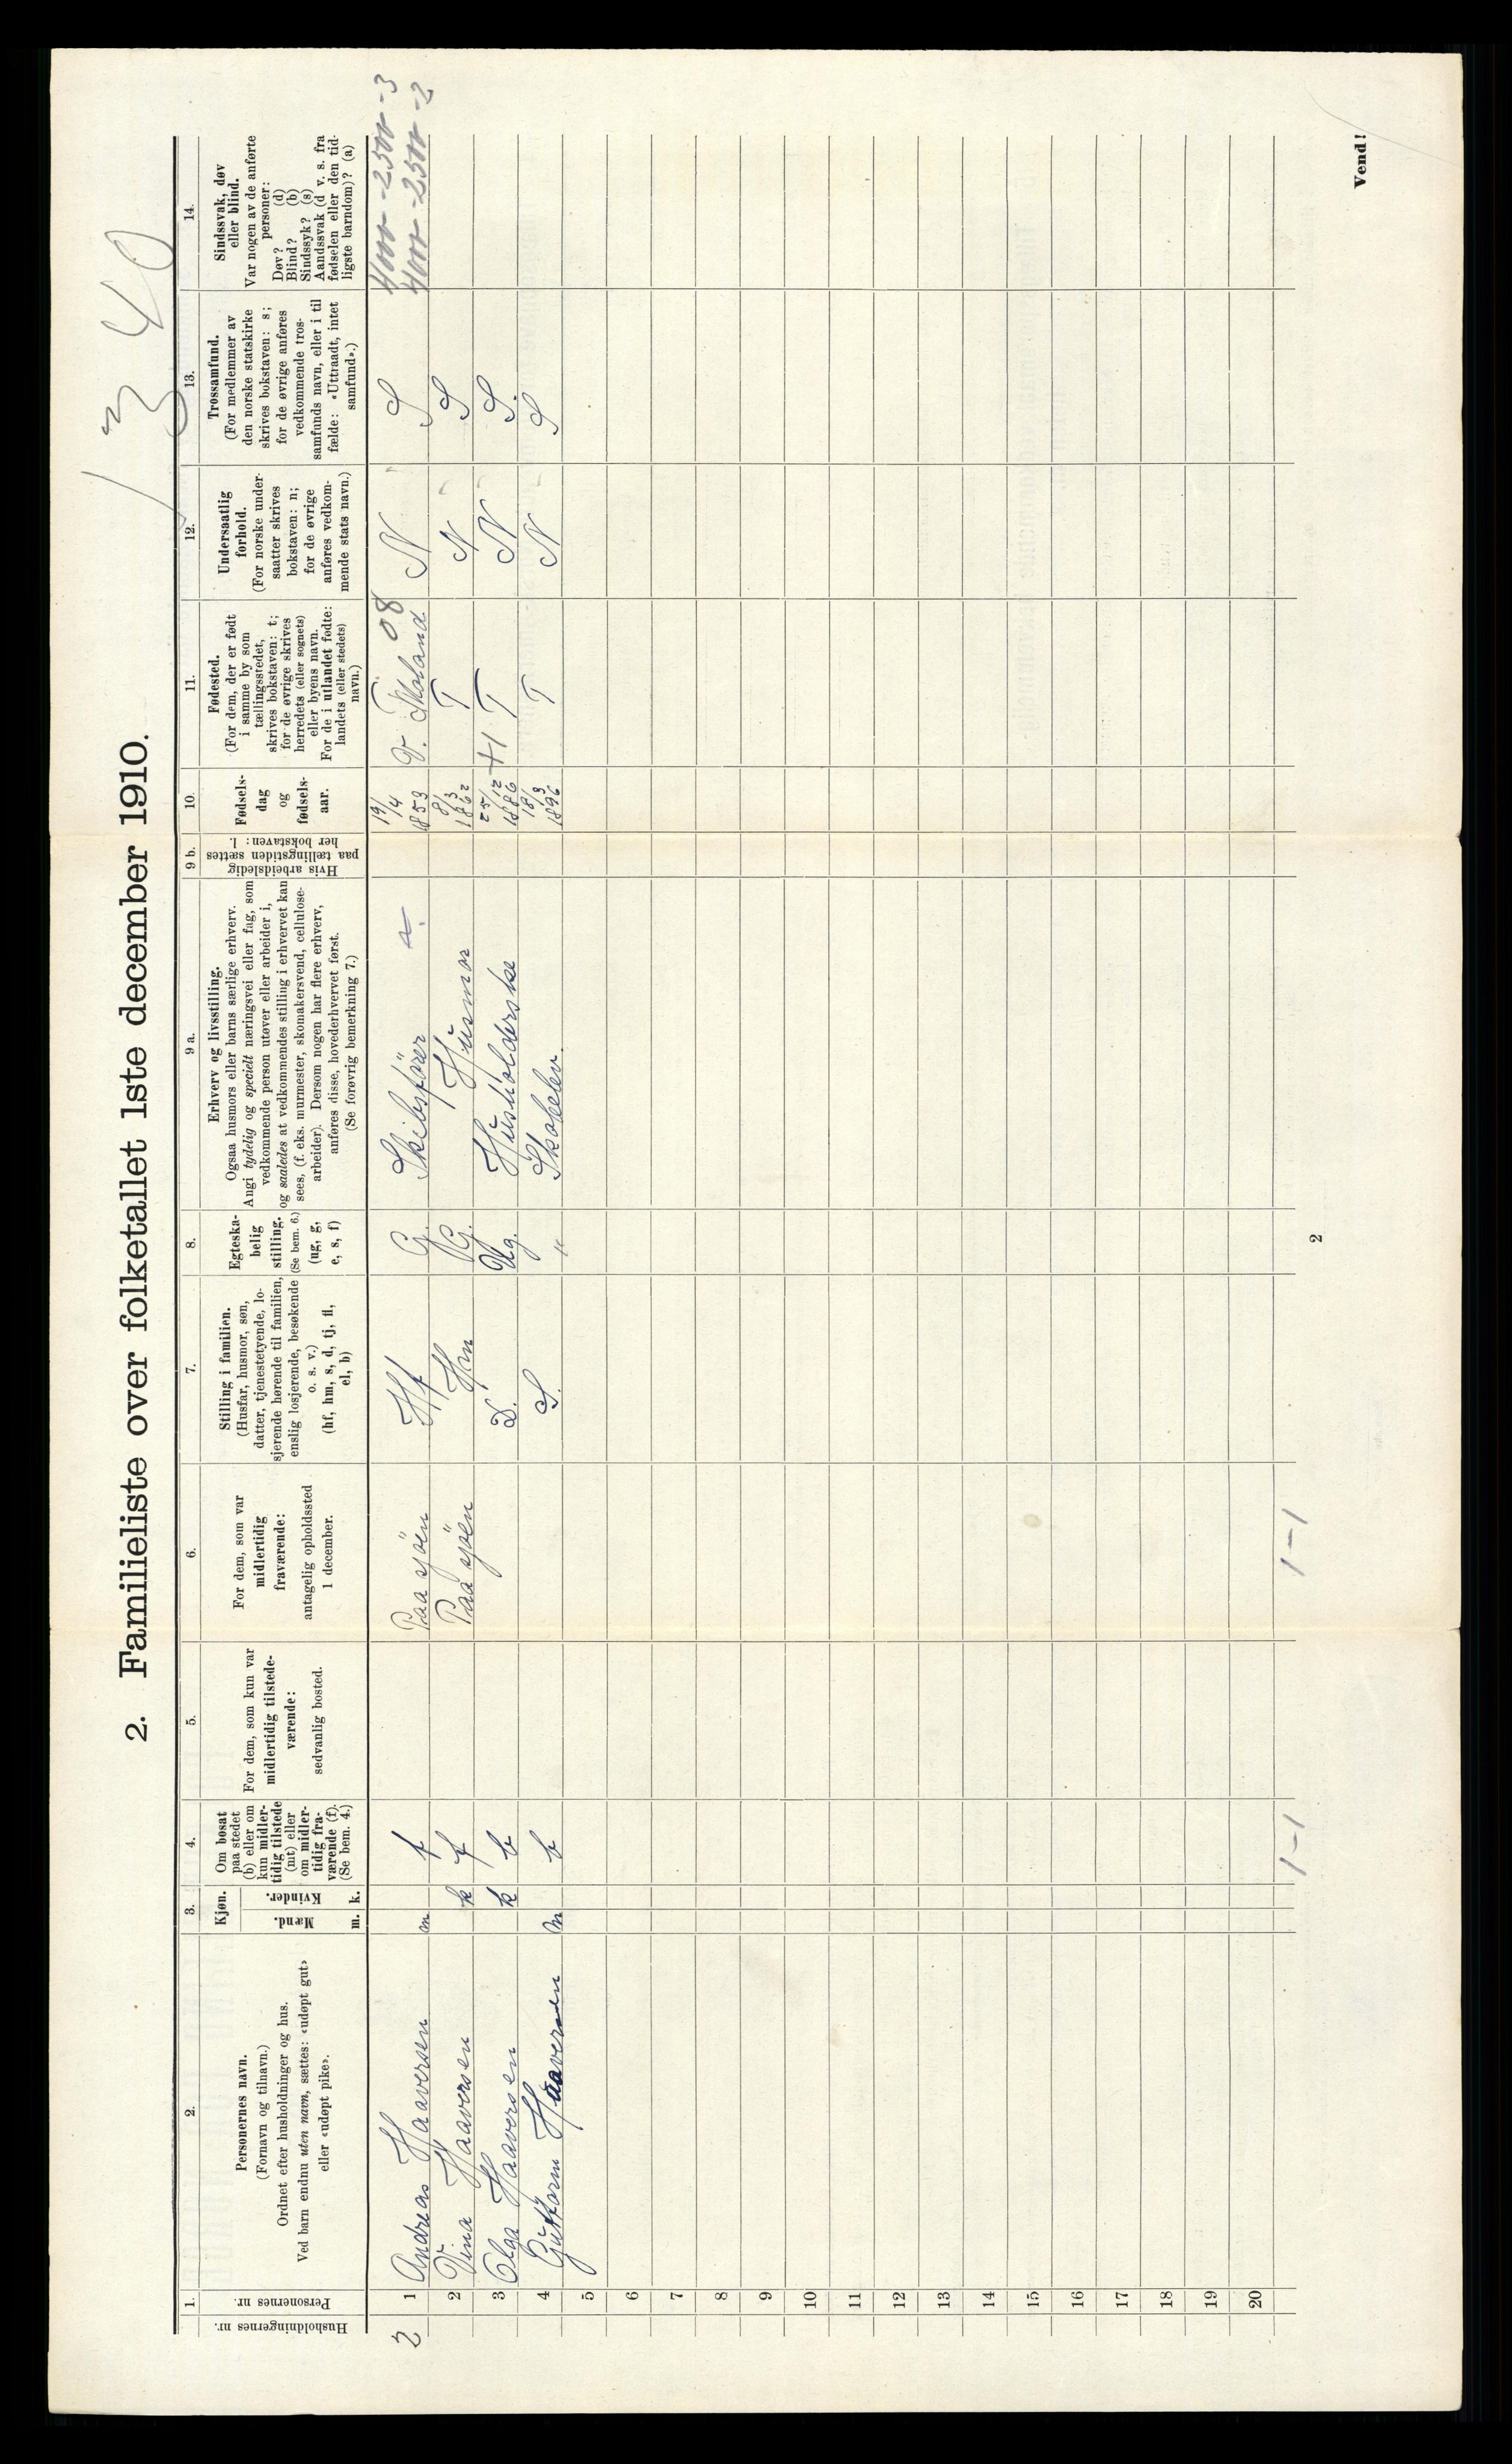 1340
2. Familieliste over folketallet 1ste december 1910.
1.
2.
3.
4.
5.
6.
7.
8.
9 a.
9 b.
10.
11.
12.
13.
14.
Husholdningernes nr.
Personernes nr.
Personernes navn.
(Fornavn og tilnavn.)
Ordnet efter husholdninger og hus.
Ved barn endnu uten navn, sættes: «udøpt gut»
eller «udøpt pike».
Kjøn.
Mænd.
Kvinder.
m. k.
Om bosat
paa stedet
(b) eller om
kun midler-
tidig tilstede
(mt) eller
om midler-
tidig fra-
værende (f).
(Se bem. 4.)
For dem, som kun var
midlertidig tilstede-
værende:
sedvanlig bosted.
For dem, som var
midlertidig
fraværende:
antagelig opholdssted
1 december.
Stilling i familien.
(Husfar, husmor, søn,
datter, tjenestetyende, lo-
sjerende hørende til familien,
enslig losjerende, besøkende
o. s. v.)
(hf, hm, s, d, tj, fl,
el, b)
Egteska-
belig
stilling.
(Se bem. 6.)
(ug, g,
e, s, f)
Erhverv og livsstilling.
Ogsaa husmors eller barns særlige erhverv.
Angi tydelig og specielt næringsvei eller fag, som
vedkommende person utøver eller arbeider i,
og saaledes at vedkommendes stilling i erhvervet kan
sees, (f. eks. murmester, skomakersvend, cellulose-
arbeider). Dersom nogen har flere erhverv,
anføres disse, hovederhvervet først.
(Se forøvrig bemerkning 7.)
Hvis arbeidsledig
paa tællingstiden sættes
her bokstaven: l.
Fødsels-
dag
og
fødsels-
aar.
Fødested.
(For dem, der er født
i samme by som
tællingsstedet,
skrives bokstaven: t;
for de øvrige skrives
herredets (eller sognets)
eller byens navn.
For de i utlandet fødte:
landets (eller stedets)
navn.)
Undersaatlig
forhold.
(For norske under-
saatter skrives
bokstaven: n;
for de øvrige
anføres vedkom-
mende stats navn.)
Trossamfund.
(For medlemmer av
den norske statskirke
skrives bokstaven: s;
for de øvrige anføres
vedkommende tros-
samfunds navn, eller i til
fælde: «Uttraadt, intet
samfund».)
Sindssvak, døv
eller blind.
Var nogen av de anførte
personer:
Døv? (d)
Blind? (b)
Sindssyk? (s)
Aandssvak (d v. s. fra
fødselen eller den tid-
ligste barndom)? (a)
1 Andreas Haaversen m f Paa sjöen Hf G. Skibsförer 19/4 1853 V. Moland 08 N S 4000 - 2500 - 3
2 Vina Haaversen k f Paa sjöen Hm G. Husmor 8/3 1862 T N S 4000 - 2500 - 2
3 Olga Haaversen k b D. Ug. Husholderske 25/12 1886 T N S.
4 Guttorm Haaversen m b S. " Skoleelev. 18/3 1896 T N S
5
6
7
8
9
10
11
12
13
14
15
16
17
18
19
20
1-1
1-1
2
Vend!